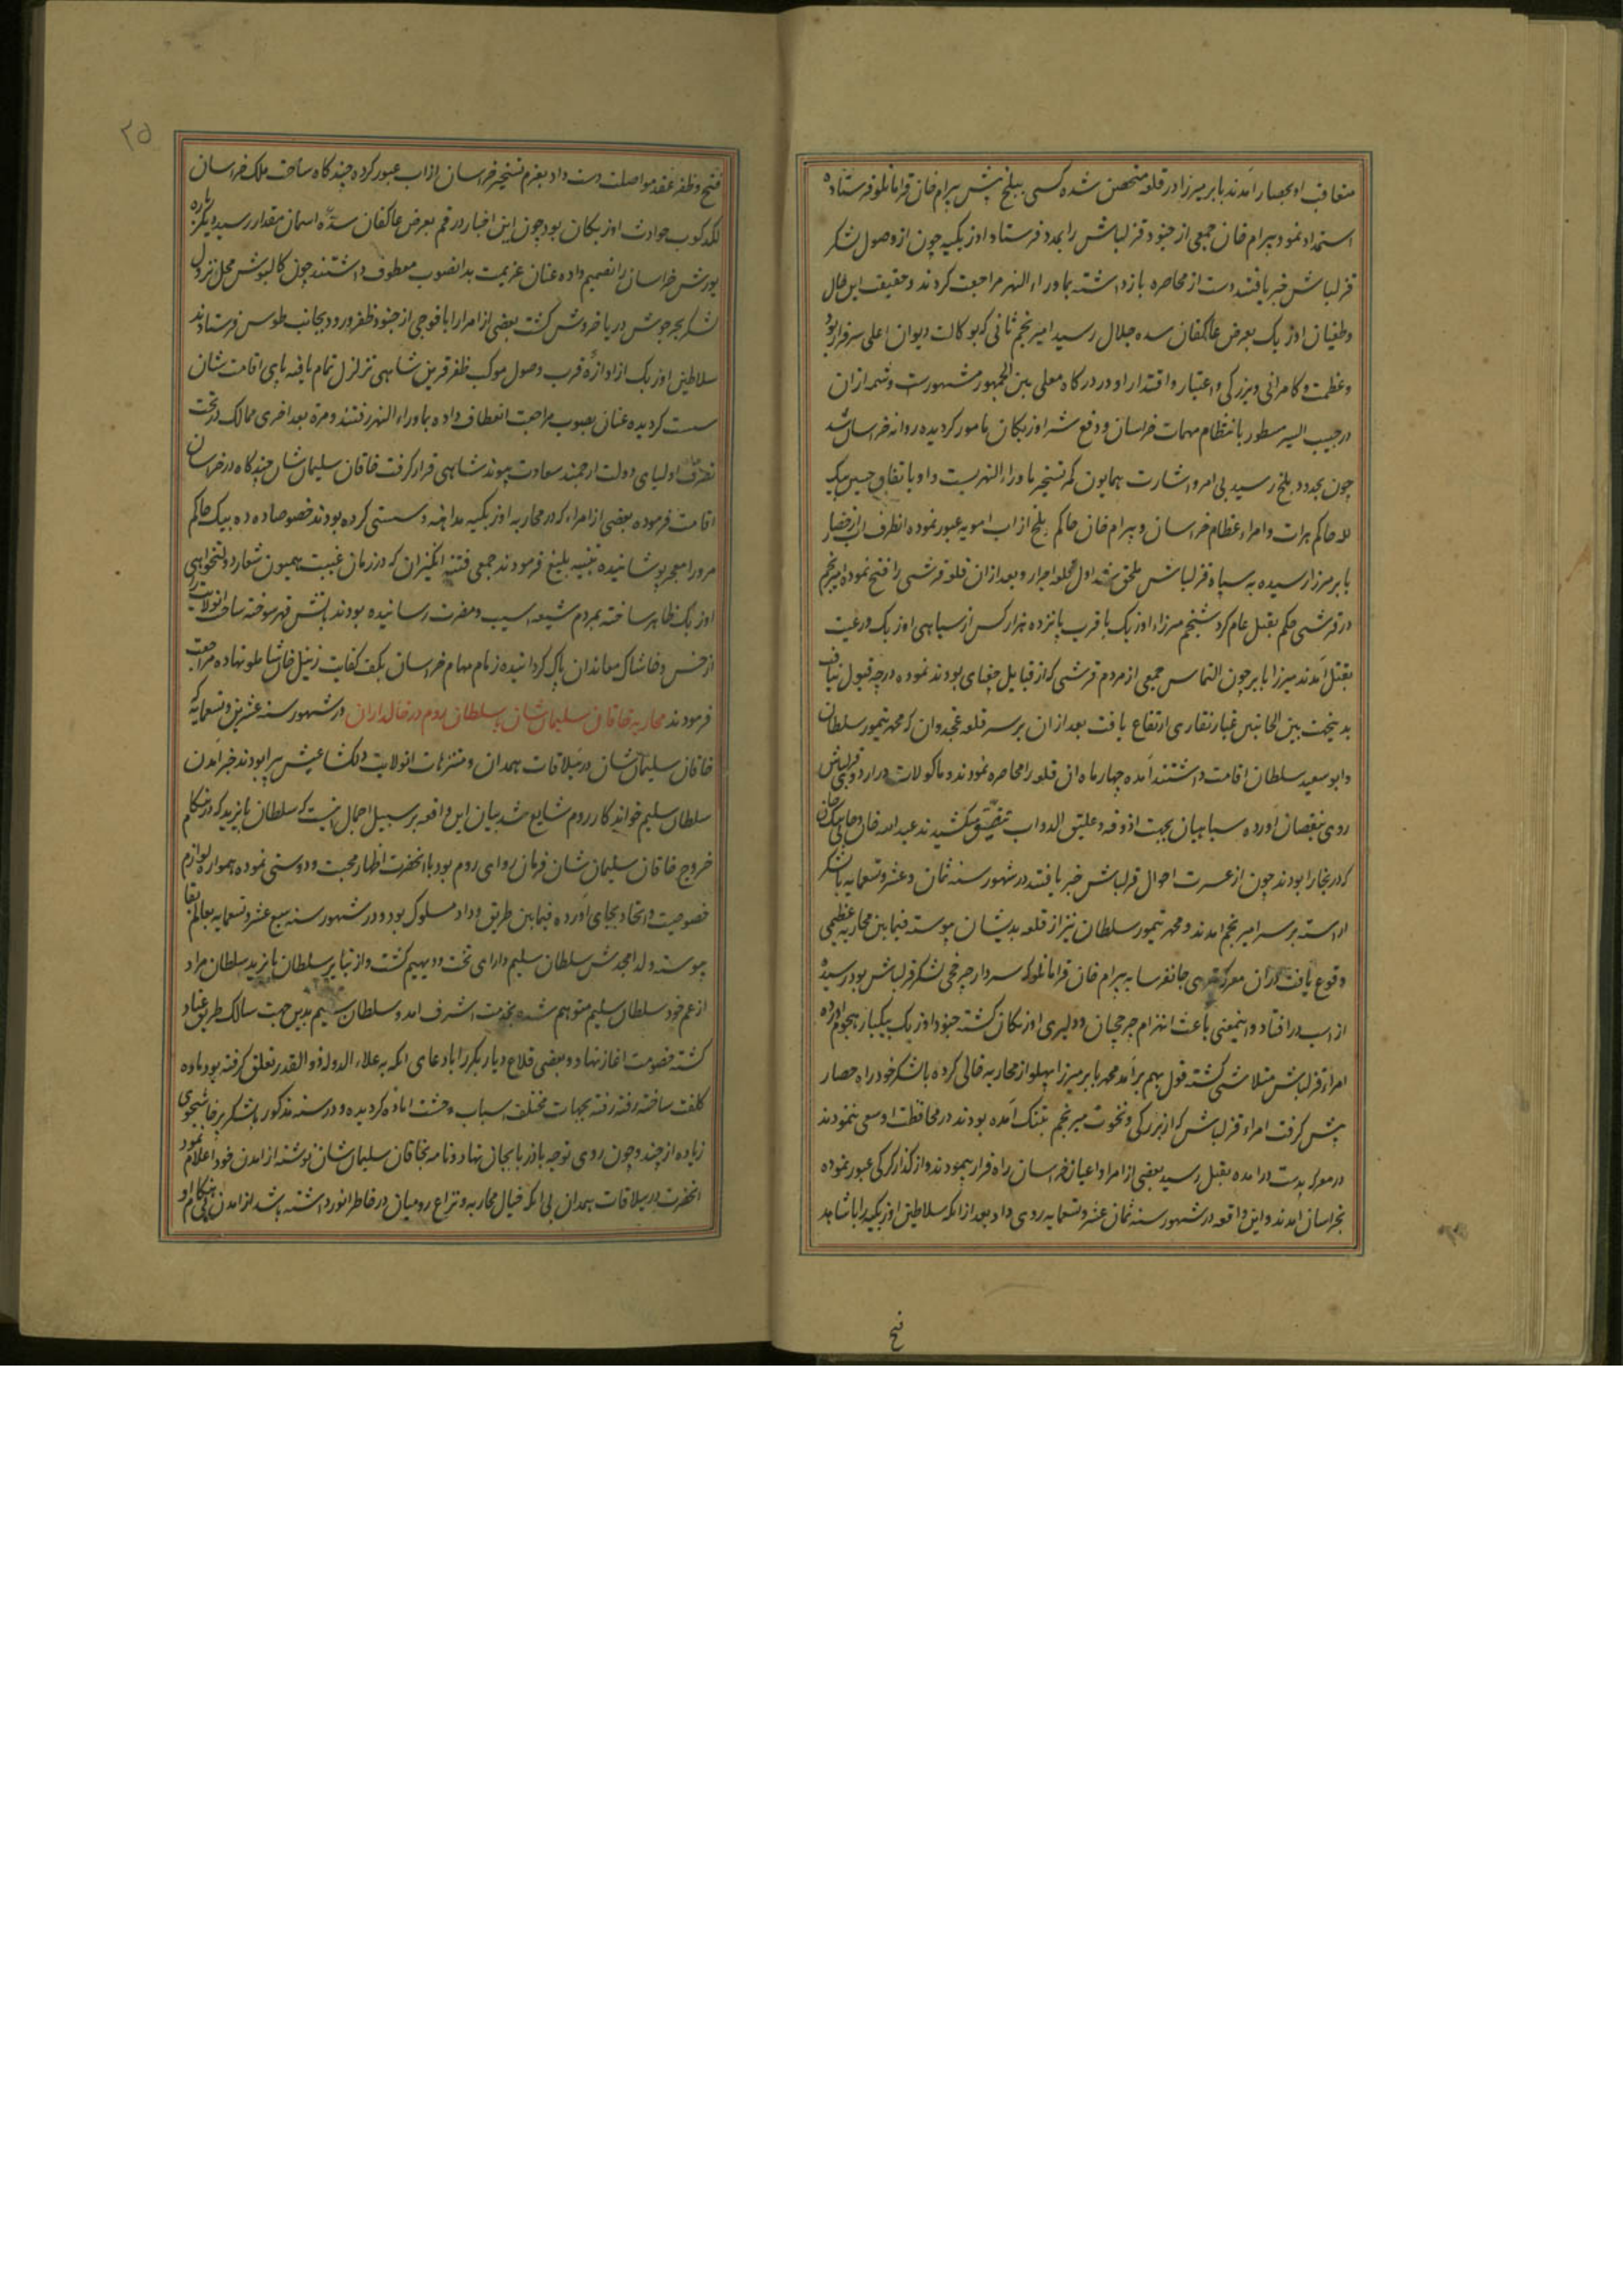 متعاقب او بحصار آمدند بابر میرزا در قلعه متحصن شده کسی ببلخ پیش بیرام خان قرامانلو فرستاده
استمداد نمود بیرام خان جمعی از جنود قزلباش را بمدد فرستاد و اوزبکیه چون از وصول لشکر
قزلباش خبر یافتند دست از محاصره بازداشته بماوراء النهر مراجعت کردند و حقیقت این حال
و طغیان اوزبک بعرض عاکفان سده جلال رسید امیر نجم ثانی که بوکالت دیوان اعلی سرفراز بود
و عظمت و کامرانی و بزرگی و اعتبار و اقتدار او در درگاه معلی بین الجمهور مشهورست و شمه ازان
در حبیب السیر مسطور بانتظام مهمات خراسان و دفع شر اوزبکان مامور گردیده روانه خراسان شد
چون بحدود بلخ رسید بی امر و اشارت همایون کمر تسخیر ماوراء النهر بست و او باتفاق حسین بیک
لله حاکم هرات و امراء عظام خراسان و بیرام خان حاکم بلخ از اب امویه عبور نموده انطرف اب از حصار
بابر میرزا رسیده به سپاه قزلباش ملحق شد اول قلعه و بعد ازان قلعه قرشی را فتح نموده امیر نجم
در قرشی حکم بقتل عام کرد شیخم میرزاء اوزبک با قرب پانزده هزار کس از سپاهی اوزبک و رعیت
بقتل آمدند میرزا بابر چون التماس جمعی از مردم قرشی که از قبایل جغتای بودند نموده درجه قبول نیافت
بدینجت بین الجانبین غبار نقاری ارتفاع یافت بعد ازان بر سر قلعه غجدوان که محمد تیمور سلطان
و ابو سعید سلطان اقامت داشتند آمده چهار ماه ان قلعه را محاصره نمودند و ماکولات در اردوی قزلباش
روی بنقصان آورده سپاهیان بجهت اذوقه و علیق الدواب تضییق میکشیدند عبد الله خان و جانی بیک خان
که در بخارا بودند چون از عسرت احوال قزلباش خبر یافتند در شهور سنه ثمان و عشر و تسعمایه با لشکر
اراسته بر سر امیر نجم امدند و محمد تیمور سلطان نیز از قلعه بدیشان پیوسته فیمابین محاربه عظیمی
وقوع یافت دران معرکه جانفرسا به بیرام خان قرامانلو که سردار چرخچی لشکر قزلباش بود رسیده
از اسب در افتاد و اینمعنی باعث انهزام چرخچیان و دلیری اوزبکان گشته جنود اوزبک بیکبار هجوم اورده
امراء قزلباش متلاشی گشته قول بهم برآمد محمد بابر میرزا پهلو از محاربه خالی کرده با لشکر خود راه حصار
پیش گرفت امراء قزلباش که از بزرگی و نخوت میر نجم بتنک آمده بودند در محافظت او سعی ننمودند
در معرکه بدست درامده بقتل رسید بعضی از امرا و اعیان خراسان راه فرار پیمودند و از گذار کرکی عبور نموده
بخراسان امدند و این واقعه در شهور سنه ثمان عشر و تسعمایه روی داد بعد ازانکه سلاطین اوزبکیه را با شاهد
فتح
۲۵
فتح و ظفر عقد مواصلت دست داد بعزم تسخیر خراسان از اب عبور کرده چند گاه ساحت ملک خراسان
لکدکوب حوادث اوزبکان بود چون این اخبار در قم بعرض عاکفان سده اسمان مقدار رسید دیگر باره
یورش خراسان را تصمیم داده عنان عزیمت بدانصوب معطوف داشتند چون کالپوش محل نزول
لشکر بحر جوش دریا خروش گشت بعضی از امرا را با فوجی از جنود ظفر ورود بجانب طوس فرستادند
سلاطین اوزبک از اوازه قرب وصول موکب ظفر قرین شاهی تزلزل تمام یافته پای اقامت شان
سست گردیده عنان بصوب مراجعت انعطاف داده بماوراء النهر رفتند و مرة بعد اخری ممالک در تحت
تصرف اولیای دولت ارجمند سعادت پیوند شاهی قرار گرفت خاقان سلیمان شان چند گاه در خراسان
اقامت فرموده بعضی از امراء که در محاربه اوزبکیه مداهنه و سستی کرده بودند خصوصا ده ده بیک حاکم
مرو را معجر پوشانیده تنبیه بلیغ فرمودند جمعی فتنه انگیزان که در زمان غیبت همیون شعار دولتخواهی
اوزبک ظاهر ساخته بمردم شیعه اسیب و مضرت رسانیده بودند باتش قهر سوخته ساحت انولایت را
از خس و خاشاک معاندان پاک گردانیده زمام مهام خراسان بکف کفایت زینل خان شاملو نهاده مراجعت
فرمودند محاربه خاقان سلیمان شان با سلطان روم در خالداران در شهور سنه عشرین و تسعمایه که
خاقان سلیمان شان در ییلاقات همدان و متنزهات انولایت دلکشا عیش پیرا بودند خبر امدن
سلطان سلیم خواندکار روم شایع شد بیان این واقعه بر سبیل اجمال انیست که سلطان بایزید که در هنگام
خروج خاقان سلیمان شان فرمان روای روم بود با انحضرت اظهار محبت و دوستی نموده همواره لوازم
خصوصیت و اتحاد بجای آورده فیمابین طریق وداد مسلوک بود و در شهور سنه سبع عشر و تسعمایه بعالم بقا
پیوسته ولد امجدش سلطان سلیم دارای تخت و دیهیم گشت و از نبایر سلطان بایزید سلطان مراد
از عم خود سلطان سلیم متوهم شده بخدمت اشرف امد و سلطان سلیم بدین جهت سالک طریق عناد
گشته خصومت اغاز نهاد و بعضی قلاع دیار بکر را بادعای انکه به علاء الدوله ذو القدر تعلق گرفته بود ماده
کلفت ساخته رفته رفته بجهات مختلف اسباب وحشت اماده گردیده و در سنه مذکور با لشکر پرخاشجوی
زیاده از چند و چون روی توجه باذربایجان نهاد و نامه بخاقان سلیمان شان نوشته از امدن خود اعلام نمود
انحضرت در ییلاقات همدان بی انکه خیال محاربه و نزاع رومیان در خاطر انور داشته باشد از امدن بی هنگام او